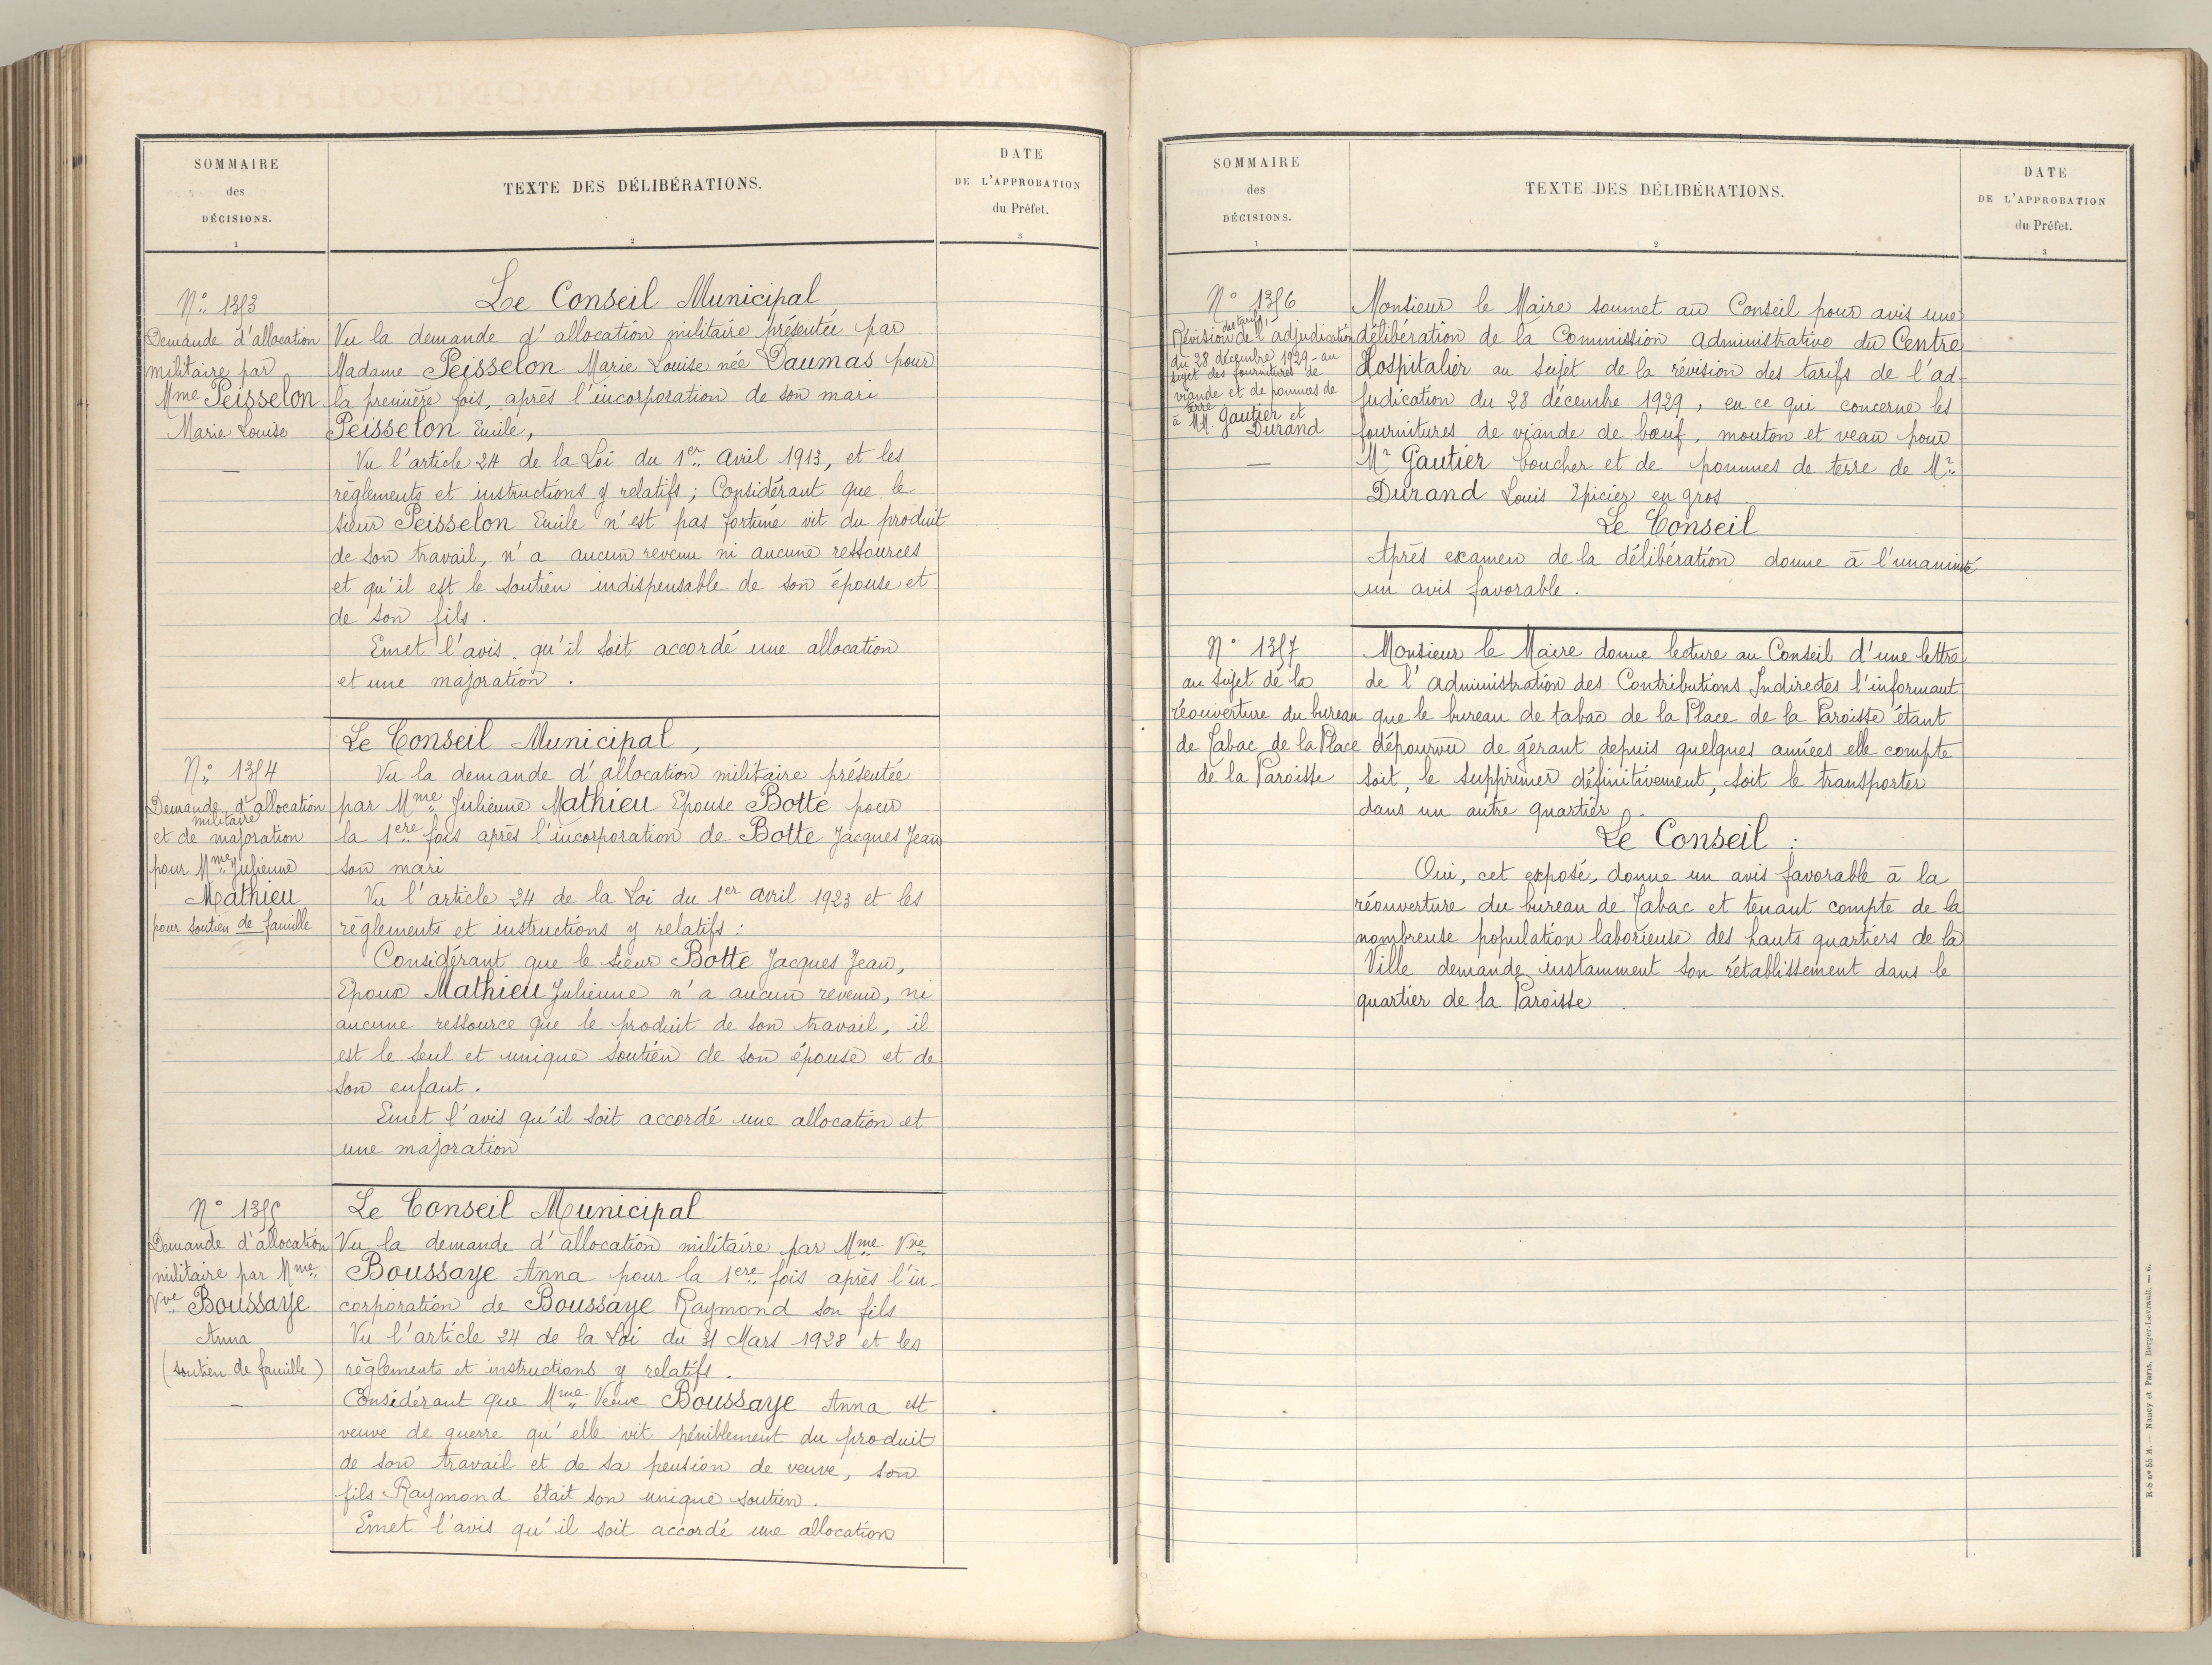 SOMMAIRE
des
DÉCISIONS.
1
TEXTE DES DÉLIBÉRATIONS.
2
DATE
DE L'APPROBATION
du Préfet.
3
N° 1353
Demande d'allocation
militaire par
Mme Peisselon
Marie Louise
Le Conseil Municipal
Vu la demande d'allocation militaire présentée par
Madame Peisselon Marie Louise née Daumas pour
la première fois, après l'incorporation de son mari
Peisselon Emile,
Vu l'article 24 de la Loi du 1er Avril 1913, et les
règlements et instructions y relatifs ; Considérant que le
sieur Peisselon Emile n'est pas fortuné vit du produit
de son travail, n'a aucun revenu ni aucune ressources
et qu'il est le soutien indispensable de son épouse et
de son fils.
Emet l'avis qu'il soit accordé une allocation
et une majoration.
N° 1354
Demande d'allocation
militaire
et de majoration
pour Mme Julienne
Mathieu
pour soutien de famille
Le Conseil Municipal,
Vu la demande d'allocation militaire présentée
par Mme Julienne Mathieu Epouse Botte pour
la 1ere fois après l'incorporation de Botte Jacques Jean
son mari
Vu l'article 24 de la Loi du 1er avril 1923 et les
règlements et instructions y relatifs :
Considérant que le sieur Botte Jacques Jean,
Epoux Mathieu Julienne n'a aucun revenu, ni
aucune ressource que le produit de son travail, il
est le seul et unique soutien de son épouse et de
son enfant.
Emet l'avis qu'il soit accordé une allocation et
une majoration
N° 1355
Demande d'allocation
militaire par Mme
Vve Boussaye
Anna
(soutien de famille)
Le Conseil Municipal
Vu la demande d'allocation militaire par Mme Vve
Boussaye Anna pour la 1ere fois après l'in-
corporation de Boussaye Raymond son fils
Vu l'article 24 de la Loi du 31 Mars 1928 et les
règlements et instructions y relatifs.
Considérant que Mme Veuve Boussaye Anna est
veuve de guerre qu'elle vit péniblement du produit
de son travail et de sa pension de veuve, son
fils Raymond était son unique soutien.
Emet l'avis qu'il soit accordé une allocation
SOMMAIRE
des
DÉCISIONS.
1
TEXTE DES DÉLIBÉRATIONS.
2
DATE
DE L'APPROBATION
du Préfet.
3
N° 1356
des tarifs
Révision de l'adjudication
du 28 décembre 1929 - au
sujet des fournitures de
viande et de pommes de
terre
à MM. Gautier et
Durand
Monsieur le Maire soumet au Conseil pour avis une
délibération de la Commission Administrative du Centre
Hospitalier au sujet de la révision des tarifs de l'ad-
judication du 28 décembre 1929, en ce qui concerne les
fournitures de viande de bœuf, mouton et veau pour
Mr Gautier boucher et de pommes de terre de Mr
Durand Louis Epicier en gros
Le Conseil
Après examen de la délibération donne à l'unanimité
un avis favorable.
N° 1357
au sujet de la
réouverture du bureau
de Tabac de la Place
de la Paroisse
Monsieur le Maire donne lecture au Conseil d'une lettre
de l'Administration des Contributions Indirectes l'informant
que le bureau de tabac de la Place de la Paroisse étant
dépourvu de gérant depuis quelques années elle compte
soit, le supprimer définitivement, soit le transporter
dans un autre quartier.
Le Conseil :
Oui, cet exposé, donne un avis favorable à la
réouverture du bureau de Tabac et tenant compte de la
nombreuse population laborieuse des hauts quartiers de la
Ville demande instamment son rétablissement dans le
quartier de la Paroisse.
R-S nº 55 A. — Nancy et Paris, Berger-Levrault. — 6.